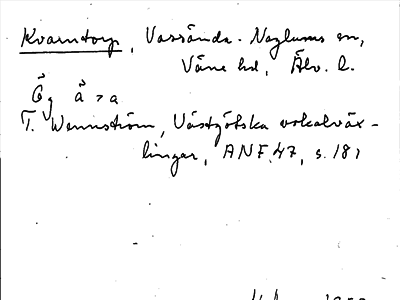 Kvarntorp, Vassända-Naglums sn,
Väne hd, Älv. l.
Ög å > a
T. Wennström, Västgötska vokalväx-
lingar, ANF 47, s. 181